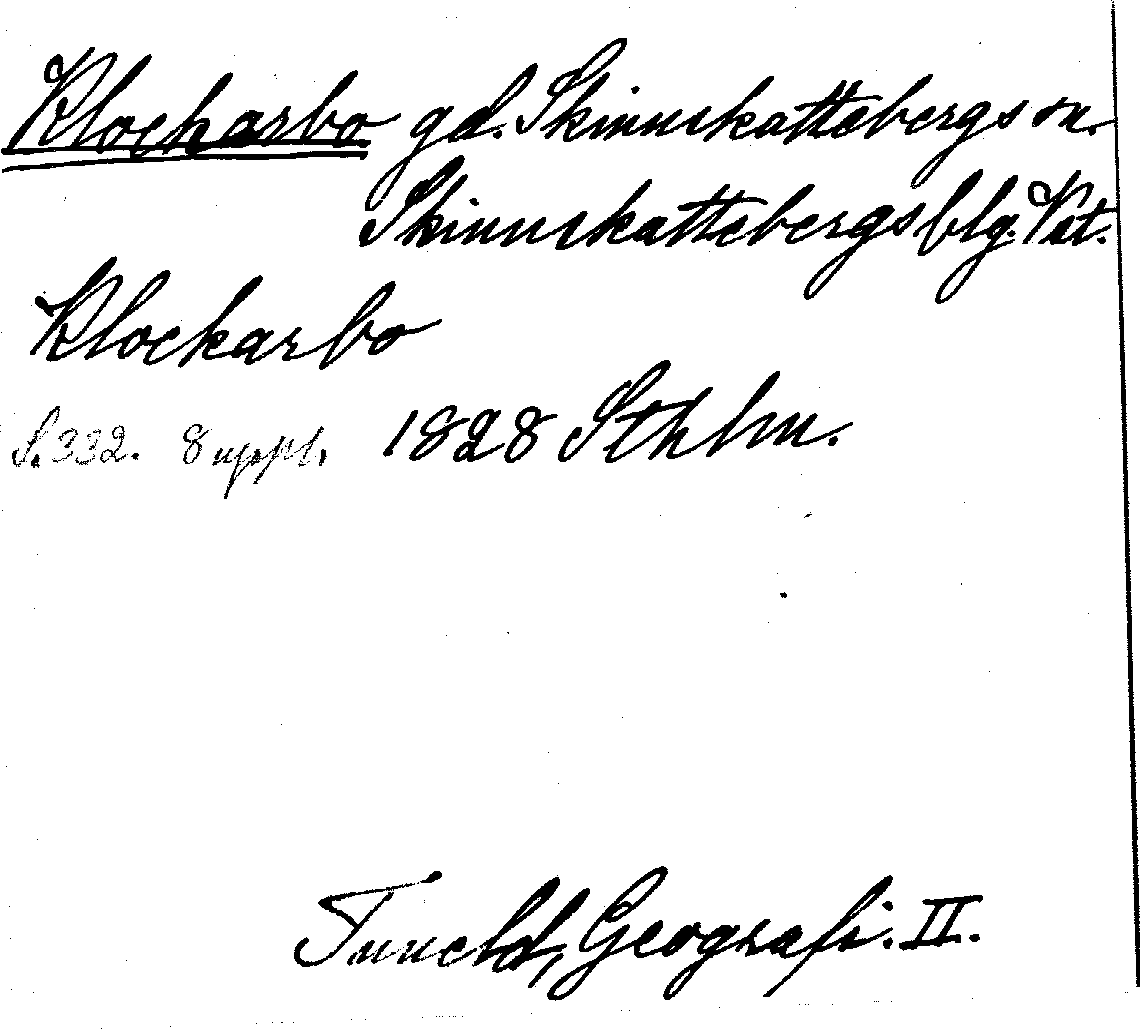 Klockarbo gd. Skinnskattebergs sn.
Skinnskattebergs blg. Vst.
Klockarbo
S. 332. 8 uppl. 1828 Sthlm.
Tuneld, Geografi. II.